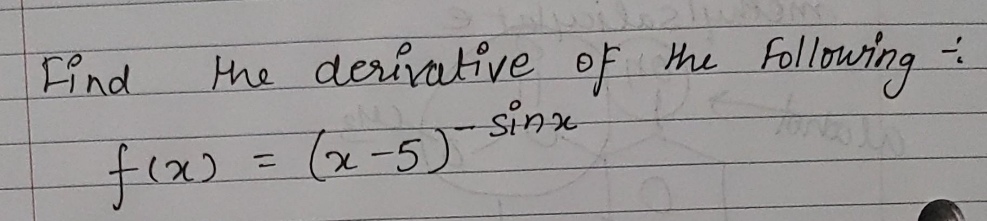 Find the derivative of the following ÷
f(x) = (x-5)^{-sinx}